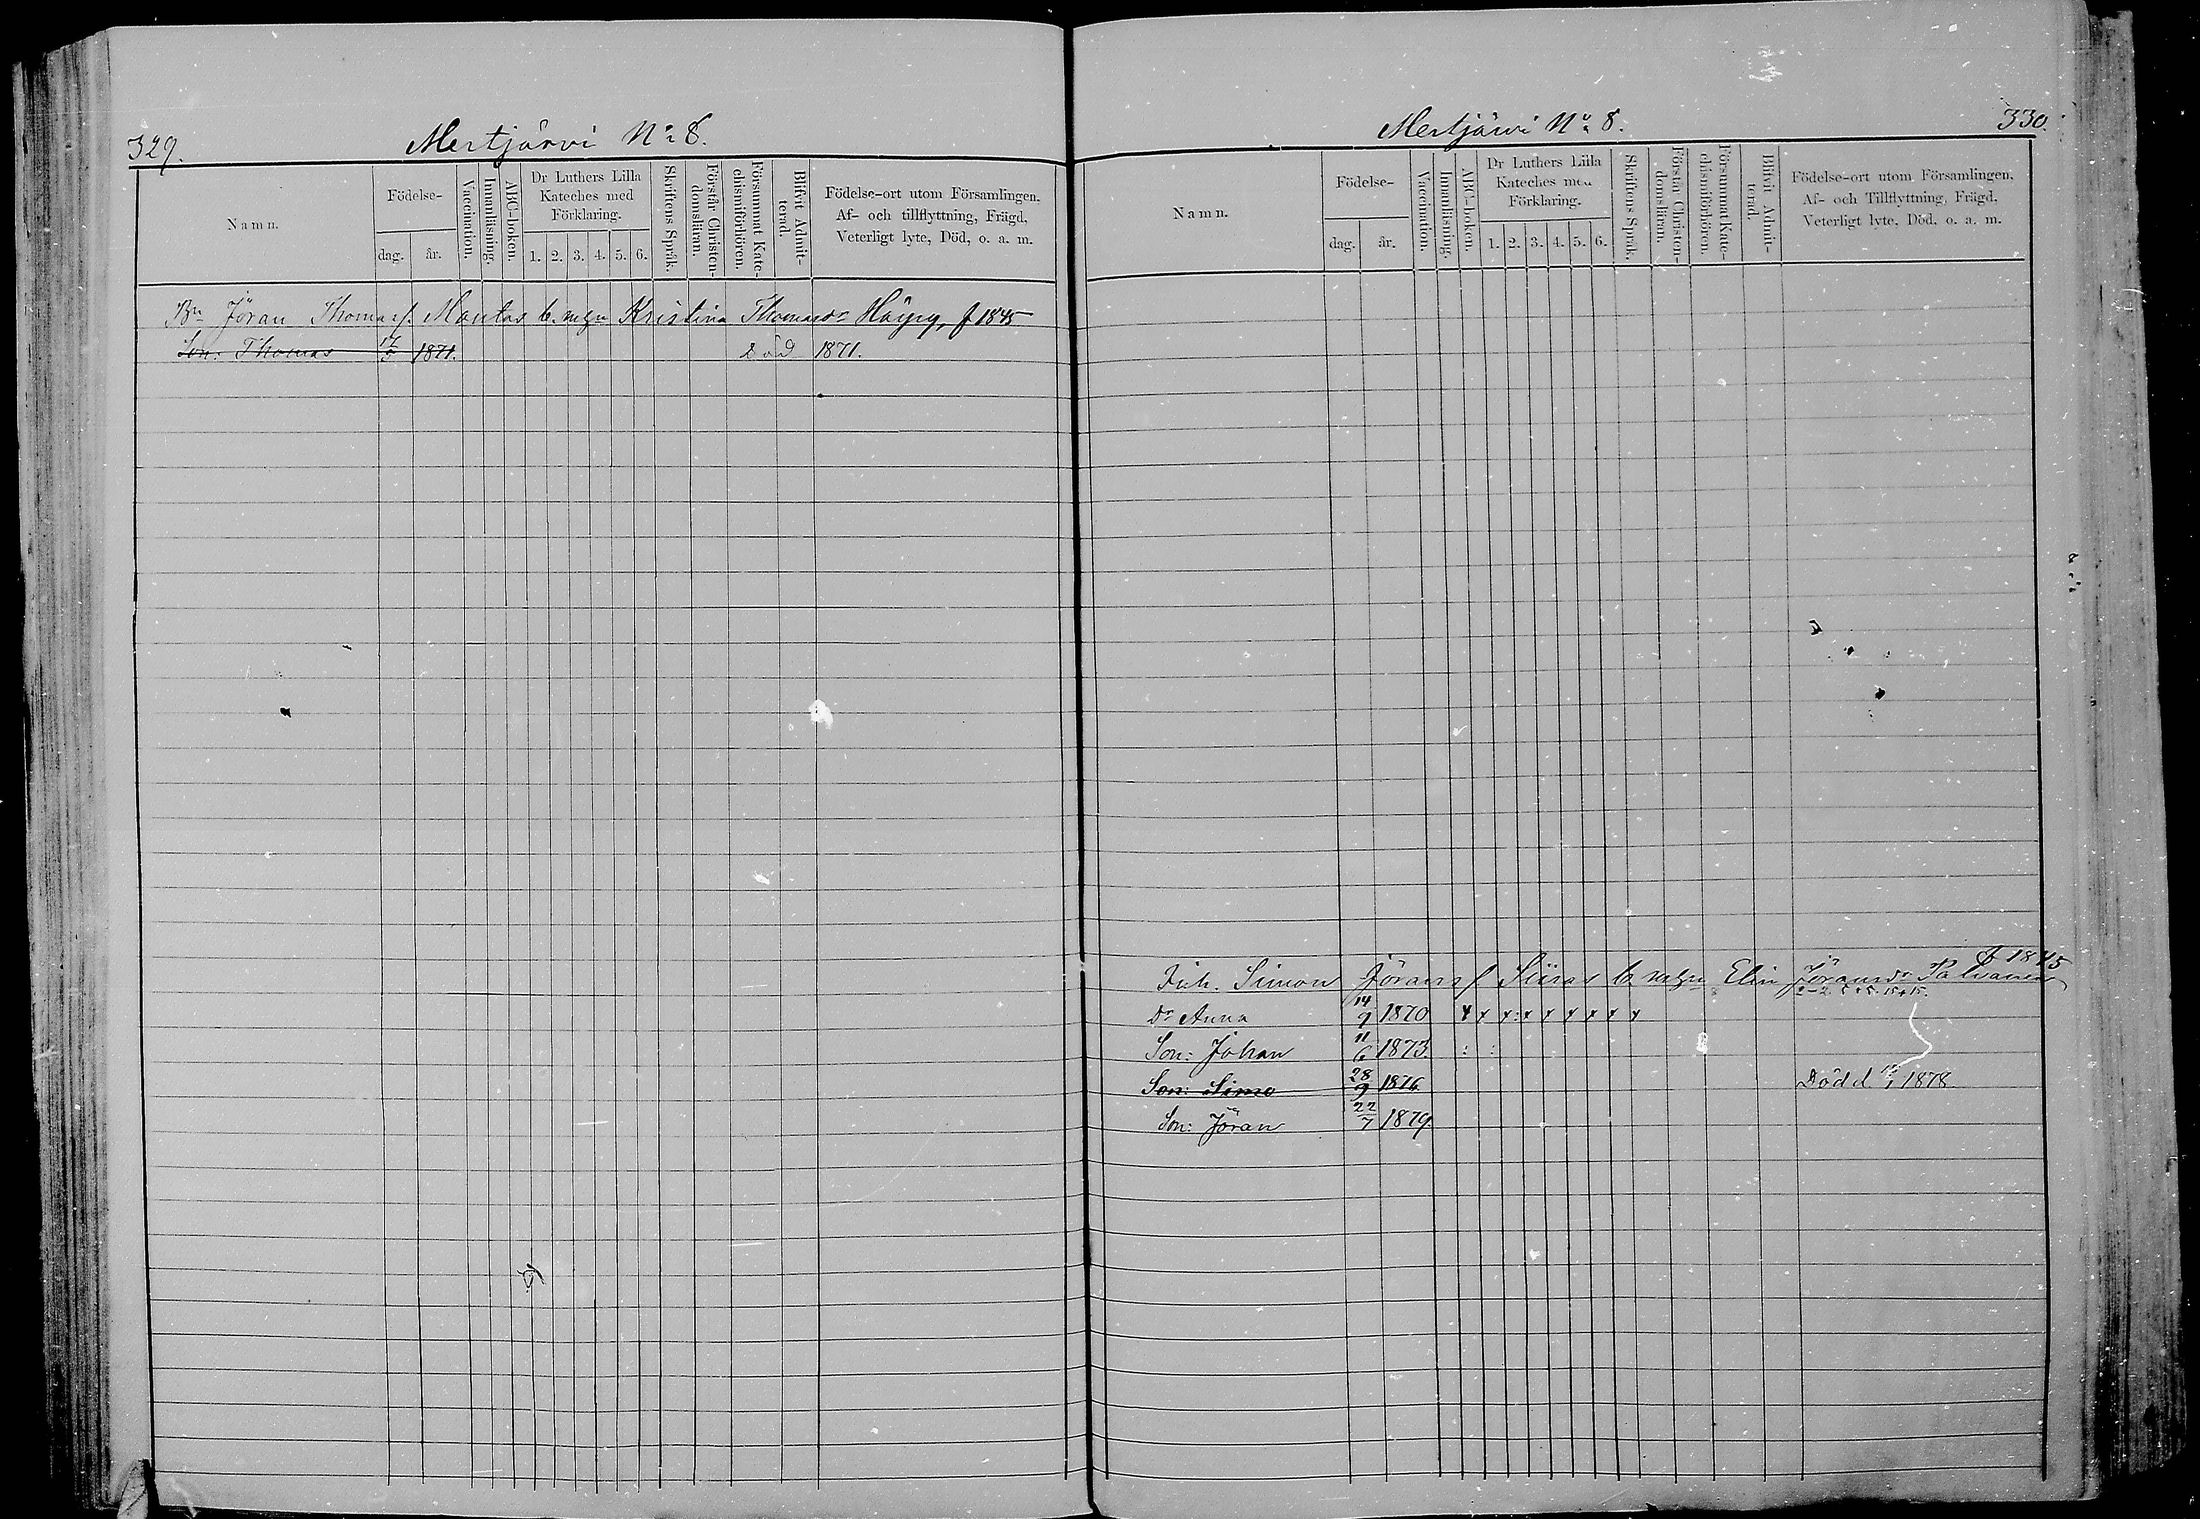 329.
Mertjärvi No 8.
Namn.
Födelse-
dag.
år.
Vaccination.
Innanläsning.
ABC-boken.
Dr Luthers Lilla
Kateches med
Förklaring.
1. 2. 3. 4. 5. 6.
Skriftens Språk.
Förstår Christen-
domsläran.
Försummat Kate-
chismiförhören.
Blifvit Admit-
terad.
Födelse-ort utom Församlingen,
Af- och tillflyttning, Frägd,
Veterligt lyte, Död, o. a. m.
Bn Jöran Thomas f. Mantas b. m. gn Kristina Thomasdr f 1845
Son: Thomas 1871. död 1871.
Mertjärvi No 8.
330.
Namn.
Födelse-
dag.
år.
Vaccination.
Innanläsning.
ABC-boken.
Dr Luthers Lilla
Kateches med
Förklaring.
1. 2. 3. 4. 5. 6.
Skriftens Språk.
Förstår Christen-
domsläran.
Försummat Kate-
chismiförhören.
Blifvit Admit-
terad.
Födelse-ort utom Församlingen,
Af- och Tillflyttning, Frägd,
Veterligt lyte, Död, o. a. m.
f 1845
Inh. Simon Jörans f Siiras b. m. gn Elin Jöransdr
Dr Anna 14/9 1870 x x x : x x x x x x
Son: Johan 11/6 1873. : :
Son: Simo 28/9 1876 Död d 1878.
Son: Jöran 22/7 1879.